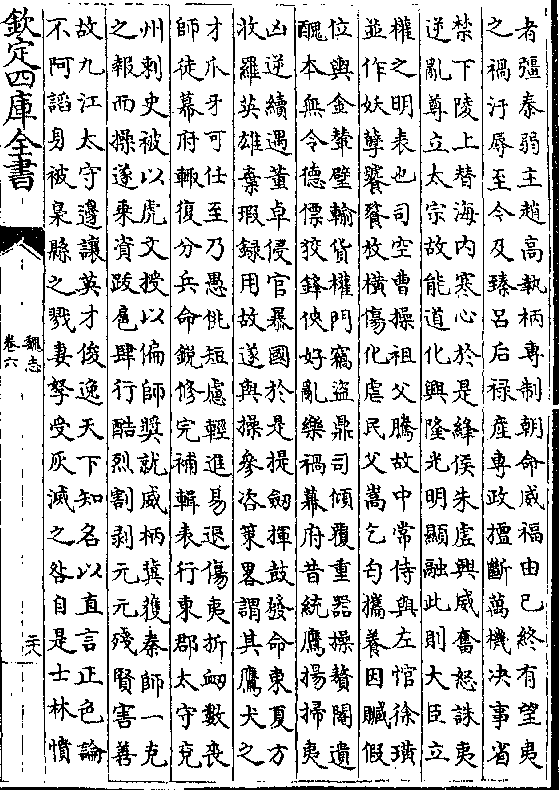 者彊秦弱主趙高執柄專制朝命威福由已終有望夷
之禍汙辱至今及臻呂后祿産專政擅斷萬機决事省
禁下陵上替海内寒心於是絳侯朱虚興威奮怒誅夷
逆亂尊立太宗故能道化興隆光明顯融此則大臣立
權之明表也司空曹操祖父騰故中常侍與左悺徐璜
並作妖孽饕餮放横傷化虐民父嵩乞匄攜養因贓假
位輿金輦璧輸貨權門竊盜鼎司傾覆重器操贅閹遺
醜本無令德僄狡鋒俠好亂樂禍幕府昔統鷹揚掃夷
凶逆續遇董卓侵官暴國於是提劒揮鼓發命東夏方
收羅英雄棄瑕録用故遂與操參咨策畧謂其鷹犬之
才爪牙可任至乃愚佻短慮輕進易退傷夷折衂數喪
師徒幕府輒復分兵命銳修完補輯表行東郡太守兖
州刺史被以虎文授以偏師奬就威柄冀獲秦師一克
之報而操遂乗資跋扈肆行酷烈割剥元元殘賢害善
故九江太守邊讓英才俊逸天下知名以直言正色論
不阿諂身被梟縣之戮妻孥受灰滅之咎自是士林憤
欽定四庫全書
魏志
卷六